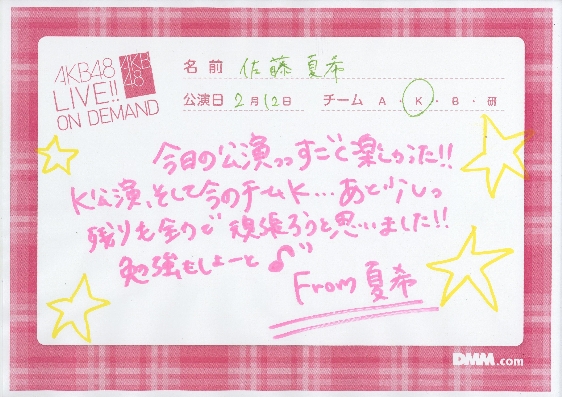 AKB48
LIVE!!
ON DEMAND
AKB
48
名前 佐藤夏希
公演日 2月12日 チーム A・K・B・研
今日の公演っっすごく楽しかった!!
K公演、そして今のチームK…あと少しっ
残りも全力で頑張ろうと思いました!!
勉強もしよーと♪
From 夏希
DMM.com